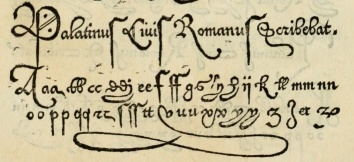 Palatinus Civis Romanus Scribebat.
A aa bb cc dd ee f ff g g hh ii k kk mm nn
oo pp qq rr ſ ſſ tt v uu xx yy z z et